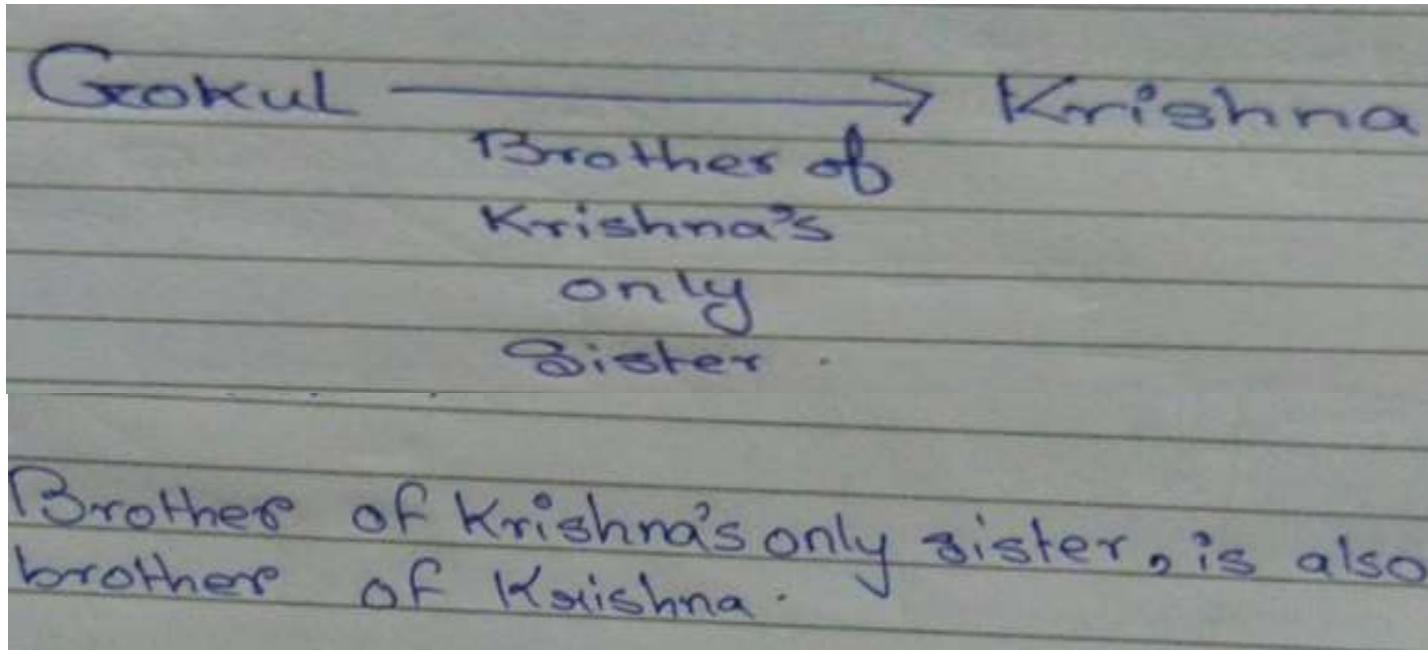 Gokul → Krishna
Brother of
Krishna's
only
Sister.
Brother of Krishna's only sister, is also
brother of Krishna.